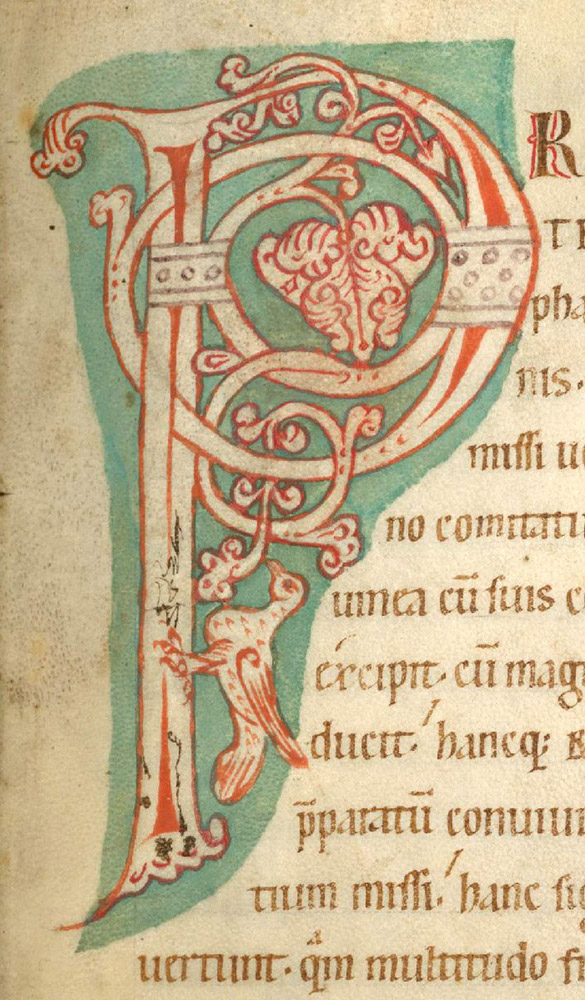 PR
TR
pha
nis.
missi ue
no comitatu
uinea cū suis c
excipit. cū mag
ducit. hancq;
p̄paratū conuiui
tium missi. hanc su
uertunt. qm multitudo fr